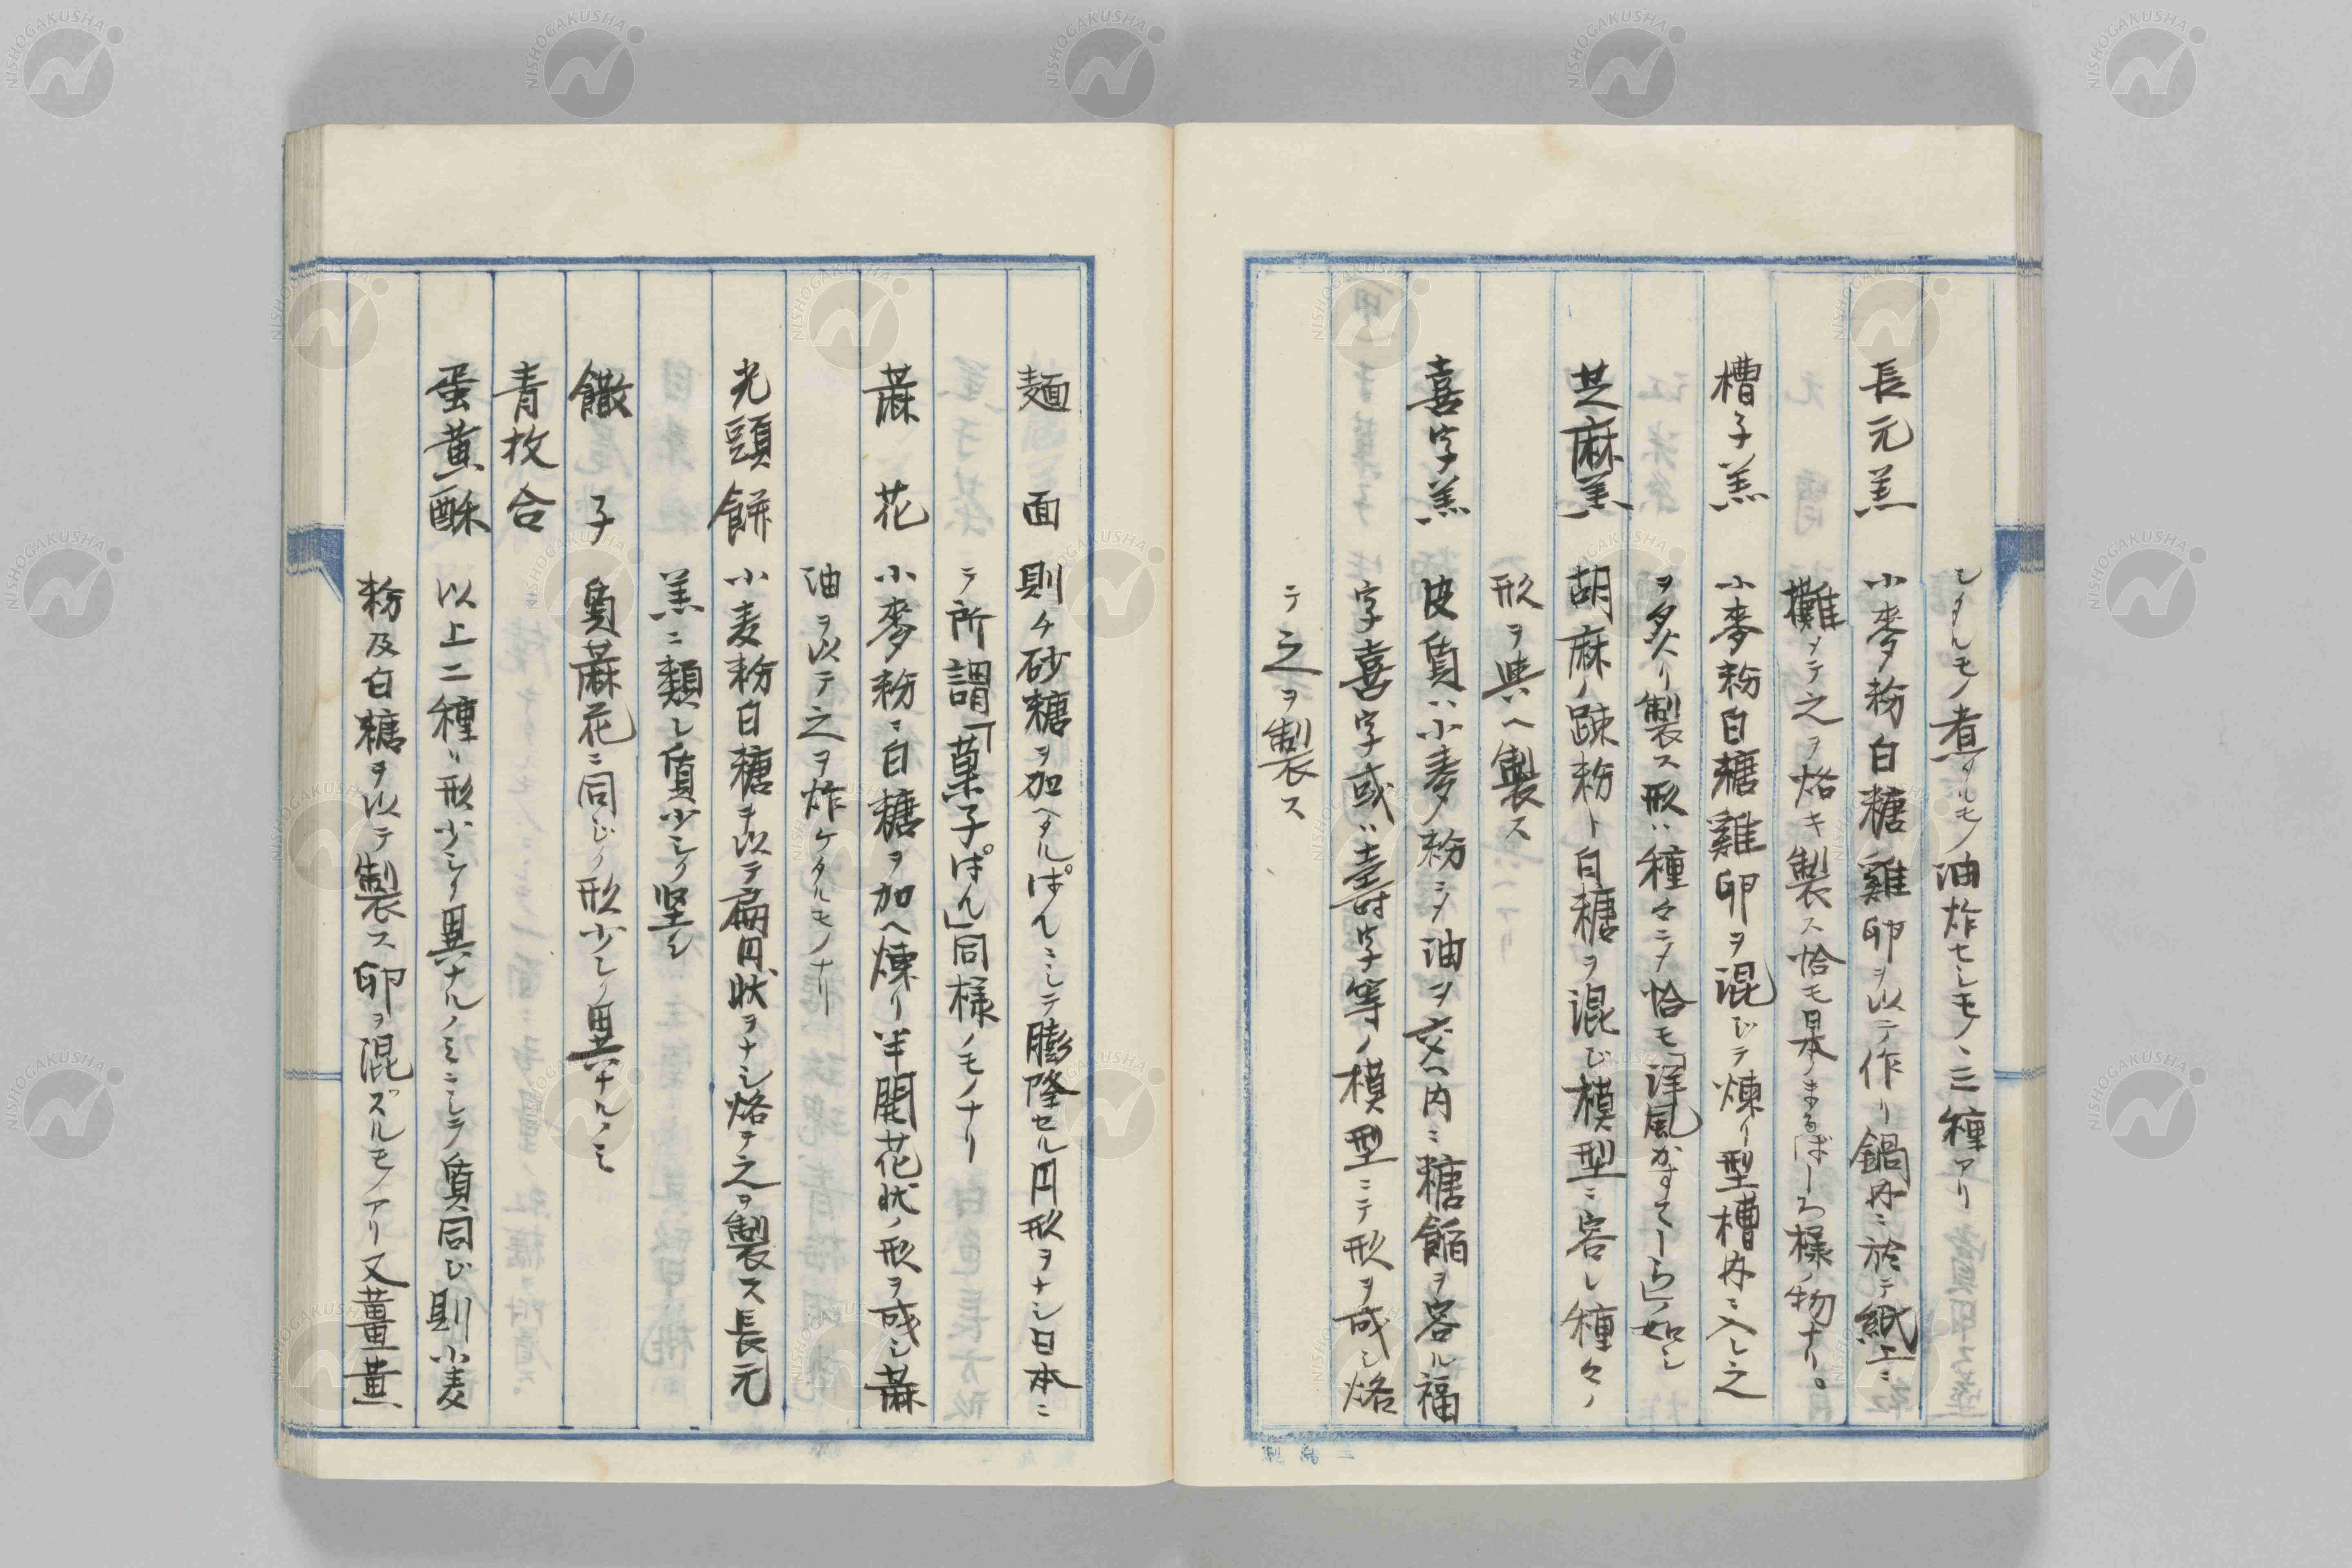 シタルモノ煮タルモノ油炸セシモノ、三種アリ
長元羔 小麥粉白糖雞卵ヲ以テ作リ鍋内ニ於テ紙上ニ
攤メテ之ヲ烙キ製ス恰モ日本ノまるぼーろ様ノ物ナリ。
槽子羔 小麥粉白糖雞卵ヲ混ジテ煉リ型槽内ニ入レ之
ヲ炙リ製ス形ハ種々ニメ恰モ「洋風かすてーら」ノ如シ
芝麻羔 胡麻ノ疎粉ト白糖ヲ混ジ模型ニ容レ種々ノ
形ヲ與ヘ製ス
喜字羔 皮質ハ小麥粉ニメ油ヲ交ヘ内ニ糖餡ヲ容ル福
字喜字或ハ壽字等ノ模型ニテ形ヲ成シ烙
テ之ヲ製ス
麺面 則チ砂糖ヲ加ヘタルぱんニシテ膨隆セル円形ヲナシ日本ニ
テ所謂「菓子ぱん」同様ノモノナリ
蔴花 小麥粉ニ白糖ヲ加ヘ煉リ半開花状ノ形ヲ成シ蔴
油ヲ以テ之ヲ炸ケタルモノナリ
光頭餅 小麦粉白糖ヲ以テ扁円状ヲナシ烙テ之ヲ製ス長元
羔ニ類シ質少シク堅シ
饊子 質蔴花ニ同ジク形少シク異ナルノミ
青枚合
蛋黄酥 以上二種ハ形少シク異ナルノミニシテ質同ジ則小麦
粉及白糖ヲ以テ製ス卵ヲ混ズルモノアリ又薑黄
NISHOGAKUSHA